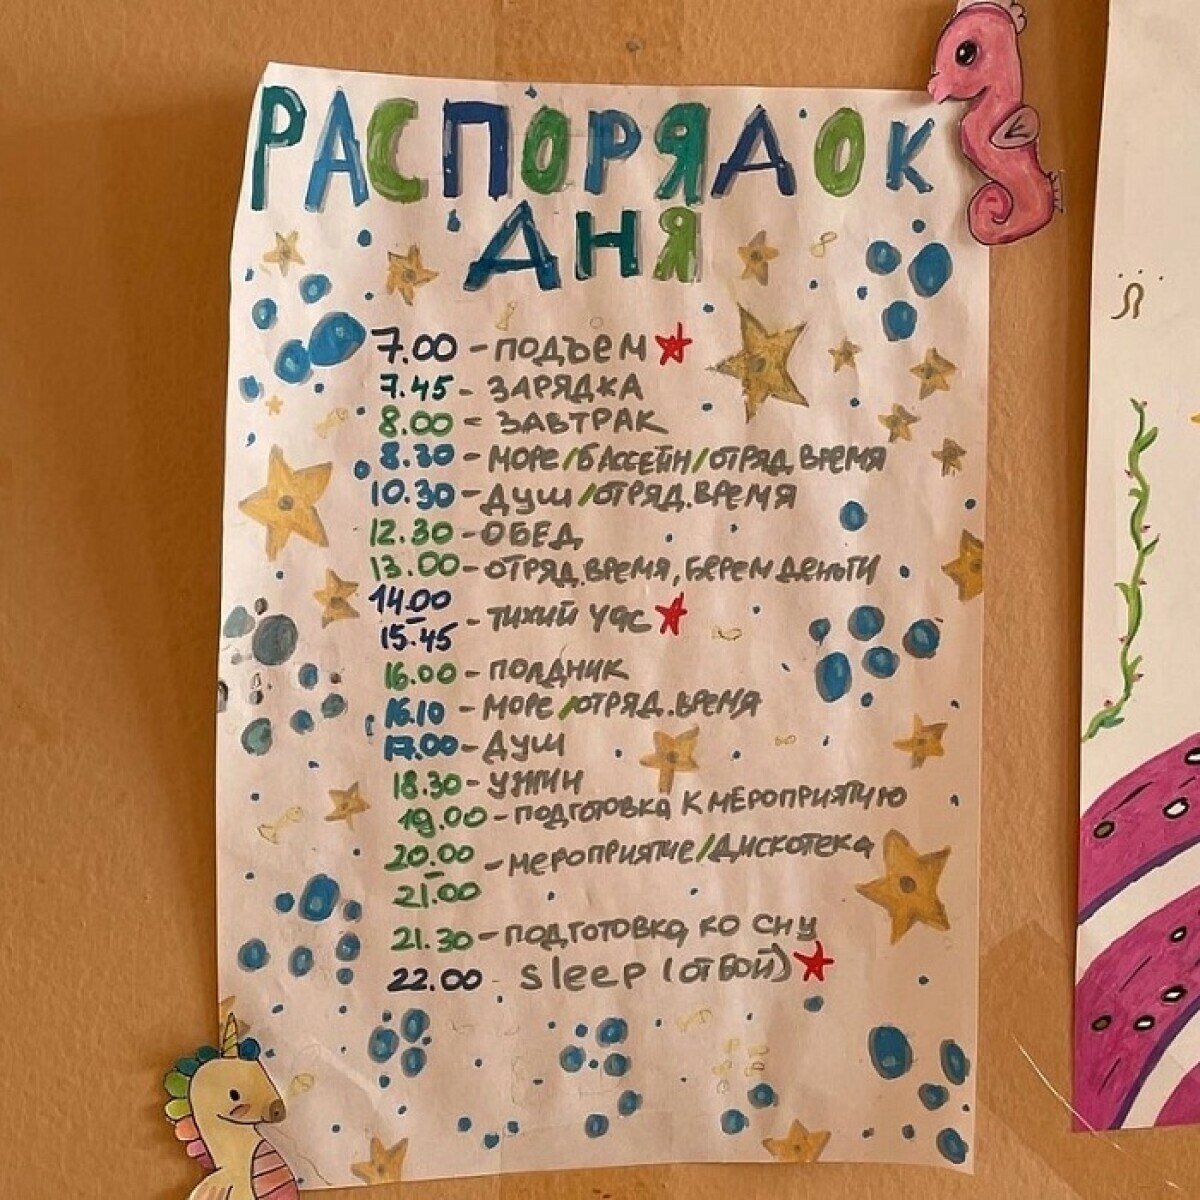 РАСПОРЯДОК
ДНЯ
7.00 - ПОДЪЕМ
7.45 - ЗАРЯДКА
8.00 - ЗАВТРАК
8.30 - МОРЕ/БАССЕЙН/ОТРЯД.ВРЕМЯ
10.30 - ДУШ/ОТРЯД.ВРЕМЯ
12.30 - ОБЕД
13.00 - ОТРЯД.ВРЕМЯ, БЕРЕМ ДЕНЬГИ
14.00 - 15.45 - ТИХИЙ ЧАС
16.00 - ПОЛДНИК
16.10 - МОРЕ/ОТРЯД.ВРЕМЯ
17.00 - ДУШ
18.30 - УЖИН
19.00 - ПОДГОТОВКА К МЕРОПРИЯТИЮ
20.00 - 21.00 - МЕРОПРИЯТИЕ/ДИСКОТЕКА
21.30 - ПОДГОТОВКА КО СНУ
22.00 - Sleep (ОТБОЙ)